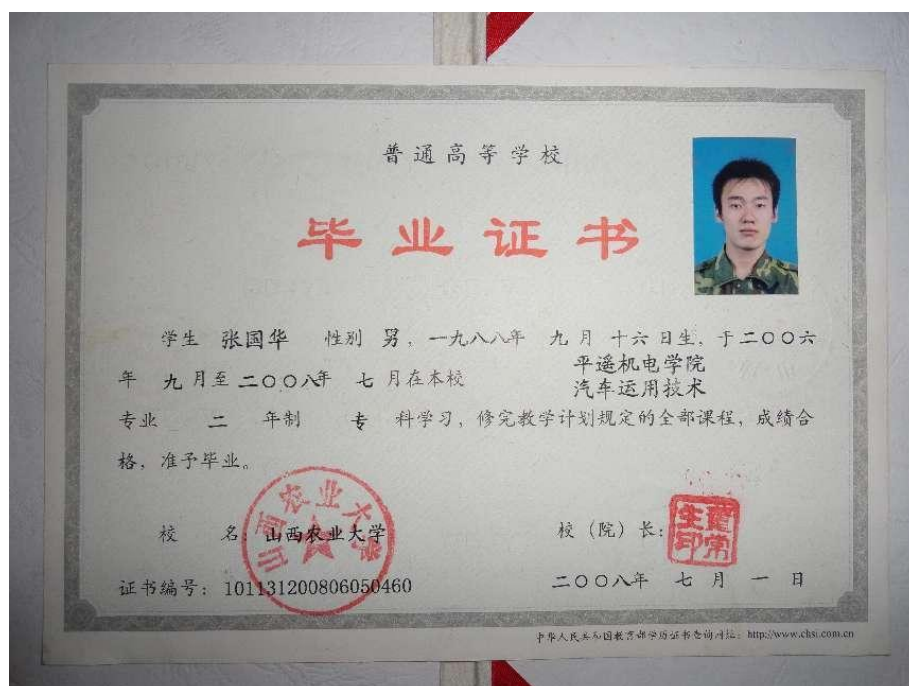 普通高等学校
毕业证书
学生 张国华 性别 男，一九八八年 九月 十六日生，于二〇〇六
年 九月至二〇〇八年 七月在本校 平遥机电学院
汽车运用技术
专业 二 年制 专 科学习，修完教学计划规定的全部课程，成绩合
格，准予毕业。
山西农业大学
校 名：山西农业大学 校（院）长：
生印
证书编号：101131200806050460 二〇〇八年 七月 一日
中华人民共和国教育部学历证书查询网址：http://www.chsi.com.cn